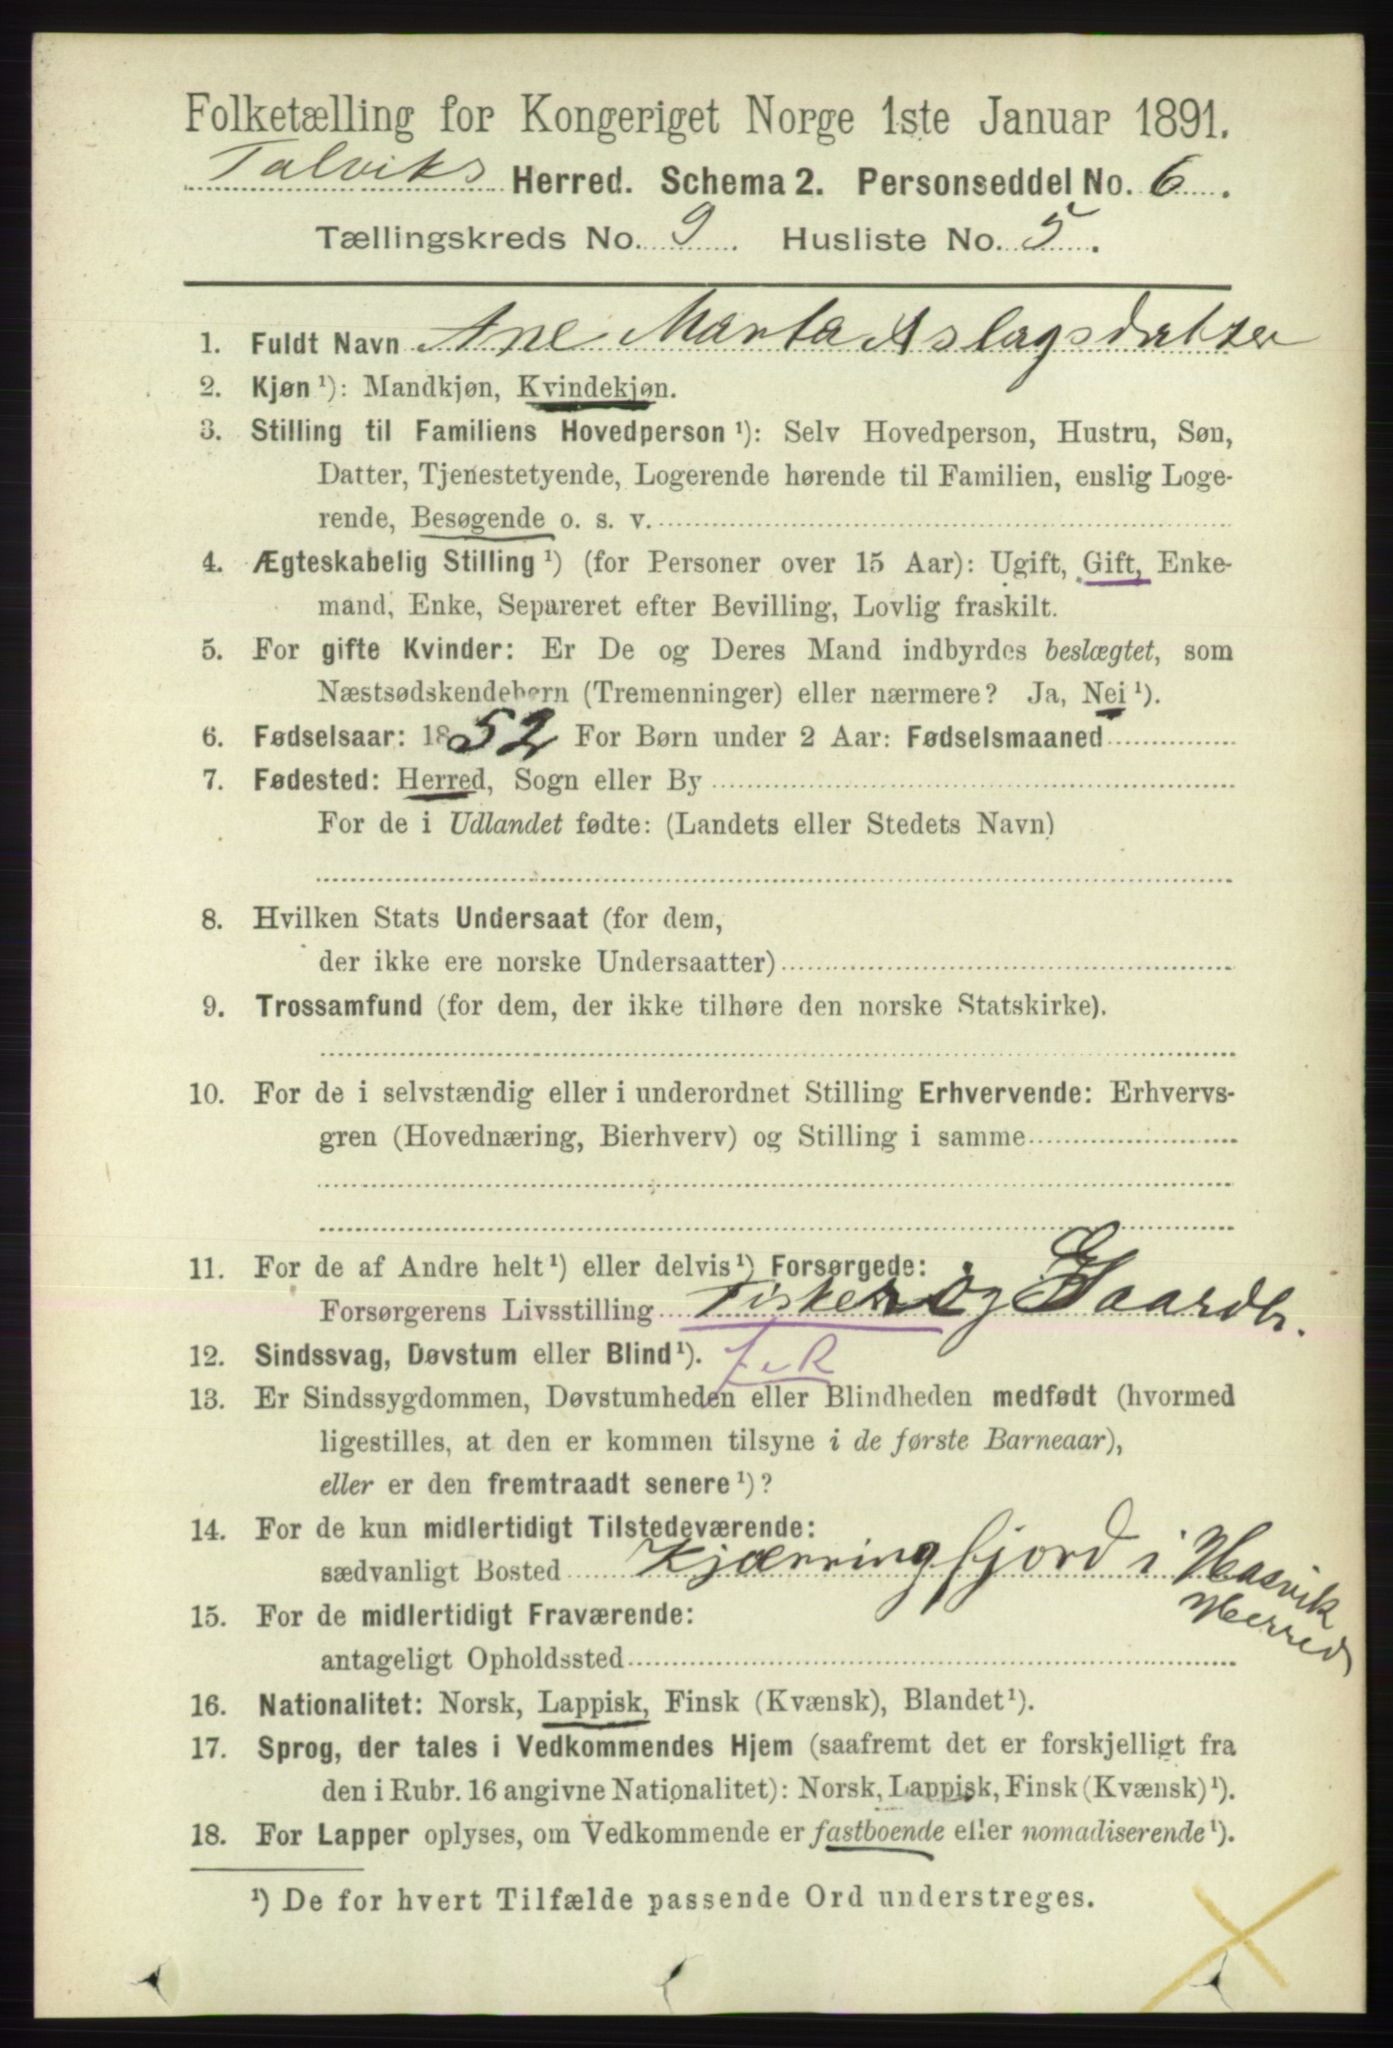 Folketælling for Kongeriget Norge 1ste Januar 1891.
Talviks Herred. Schema 2. Personseddel No. 6.
Tællingskreds No. 9. Husliste No. 5.
1. Fuldt Navn Ane Marta Aslagsdatter
2. Kjøn ¹): Mandkjøn, Kvindekjøn.
3. Stilling til Familiens Hovedperson ¹): Selv Hovedperson, Hustru, Søn,
Datter, Tjenestetyende, Logerende hørende til Familien, enslig Loge-
rende, Besøgende o. s. v.
4. Ægteskabelig Stilling ¹) (for Personer over 15 Aar): Ugift, Gift, Enke-
mand, Enke, Separeret efter Bevilling, Lovlig fraskilt.
5. For gifte Kvinder: Er De og Deres Mand indbyrdes beslægtet, som
Næstsødskendebørn (Tremenninger) eller nærmere? Ja, Nei ¹).
6. Fødselsaar: 1852 For Børn under 2 Aar: Fødselsmaaned
7. Fødested: Herred, Sogn eller By
For de i Udlandet fødte: (Landets eller Stedets Navn)
8. Hvilken Stats Undersaat (for dem,
der ikke ere norske Undersaatter)
9. Trossamfund (for dem, der ikke tilhøre den norske Statskirke).
10. For de i selvstændig eller i underordnet Stilling Erhvervende: Erhvervs-
gren (Hovednæring, Bierhverv) og Stilling i samme
11. For de af Andre helt ¹) eller delvis ¹) Forsørgede:
Forsørgerens Livsstilling Fisker og Gaardbr.
12. Sindssvag, Døvstum eller Blind ¹).
13. Er Sindssygdommen, Døvstumheden eller Blindheden medfødt (hvormed
ligestilles, at den er kommen tilsyne i de første Barneaar),
eller er den fremtraadt senere ¹)?
14. For de kun midlertidigt Tilstedeværende:
sædvanligt Bosted Kjærringfjord i Hasvik
Herred
15. For de midlertidigt Fraværende:
antageligt Opholdssted
16. Nationalitet: Norsk, Lappisk, Finsk (Kvænsk), Blandet ¹).
17. Sprog, der tales i Vedkommendes Hjem (saafremt det er forskjelligt fra
den i Rubr. 16 angivne Nationalitet): Norsk, Lappisk, Finsk (Kvænsk) ¹).
18. For Lapper oplyses, om Vedkommende er fastboende eller nomadiserende ¹).
¹) De for hvert Tilfælde passende Ord understreges.